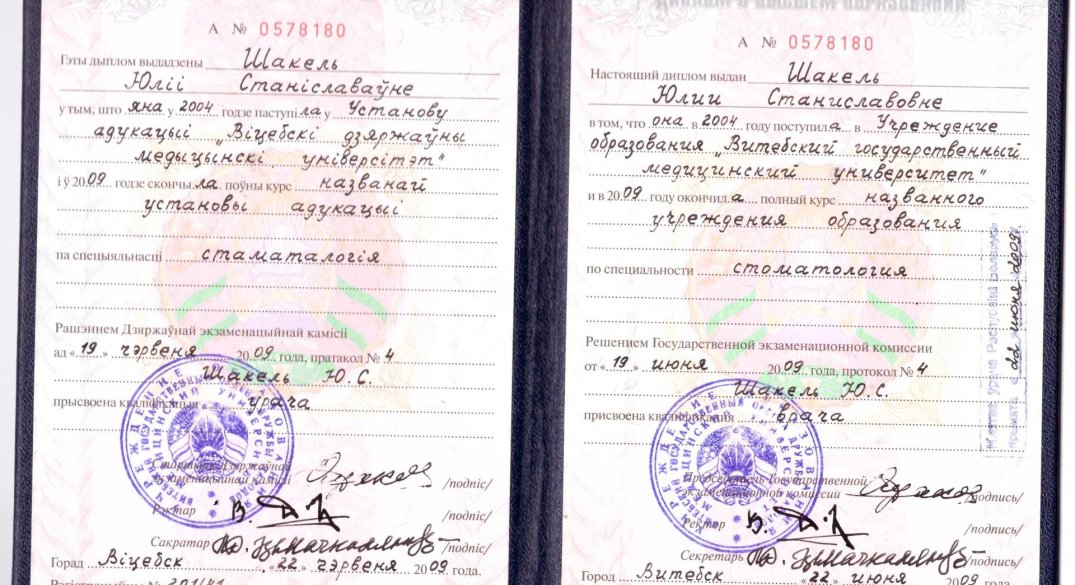 А № 0578180
Гэты дыплом выдадзены Шакель
Юліі Станіславаўне
у тым, што яна у 2004 годзе паступіла у Установу
адукацыі „Віцебскі дзяржаўны
медыцынскі універсітэт"
і ў 2009 годзе скончыла поўны курс названай
установы адукацыі
па спецыяльнасці стаматалогія
Рашэннем Дзяржаўнай экзаменацыйнай камісіі
ад «19» чэрвеня 2009 года, пратакол № 4
Шакель Ю.С.
прысвоена кваліфікацыя урача
Старшыня Дзяржаўнай
экзаменацыйнай камісіі /подпіс/
Рэктар /подпіс/
Сакратар /подпіс/
Горад Віцебск «22» чэрвеня 2009 года.
ДИПЛОМ О ВЫСШЕМ ОБРАЗОВАНИИ
А № 0578180
Настоящий диплом выдан Шакель
Юлии Станиславовне
в том, что она в 2004 году поступила в Учреждение
образования „Витебский государственный
медицинский университет"
и в 2009 году окончила полный курс названного
учреждения образования
по специальности стоматология
Решением Государственной экзаменационной комиссии
от «19» июня 2009 года, протокол № 4
Шакель Ю.С.
присвоена квалификация врача
Председатель Государственной
экзаменационной комиссии /подпись/
Ректор /подпись/
Секретарь /подпись/
Город Витебск «22» июня 2009 года.
22 июня 2009